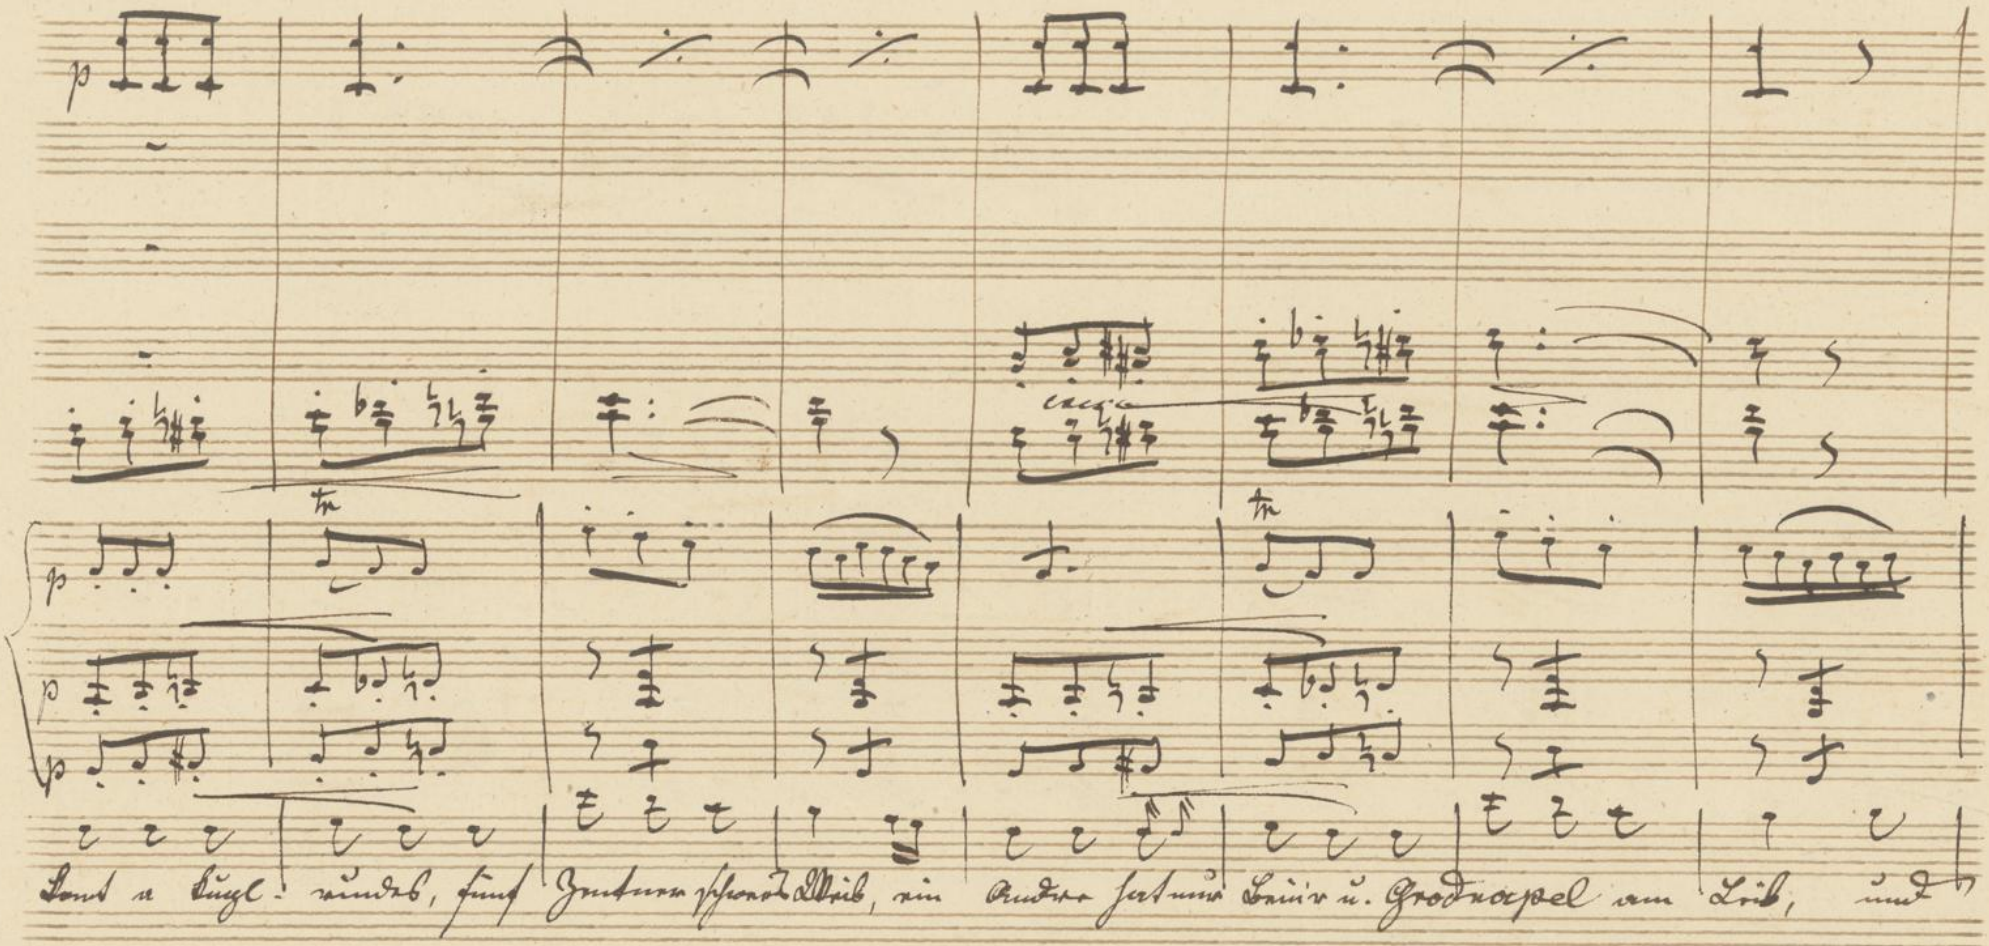 p
cresc.
tr tr
p
p
p
Komt a kugl- rundes, fünf Zentner schweres Weib, ein Andre hat nur Beiner u. Grodrapel am Leib, und